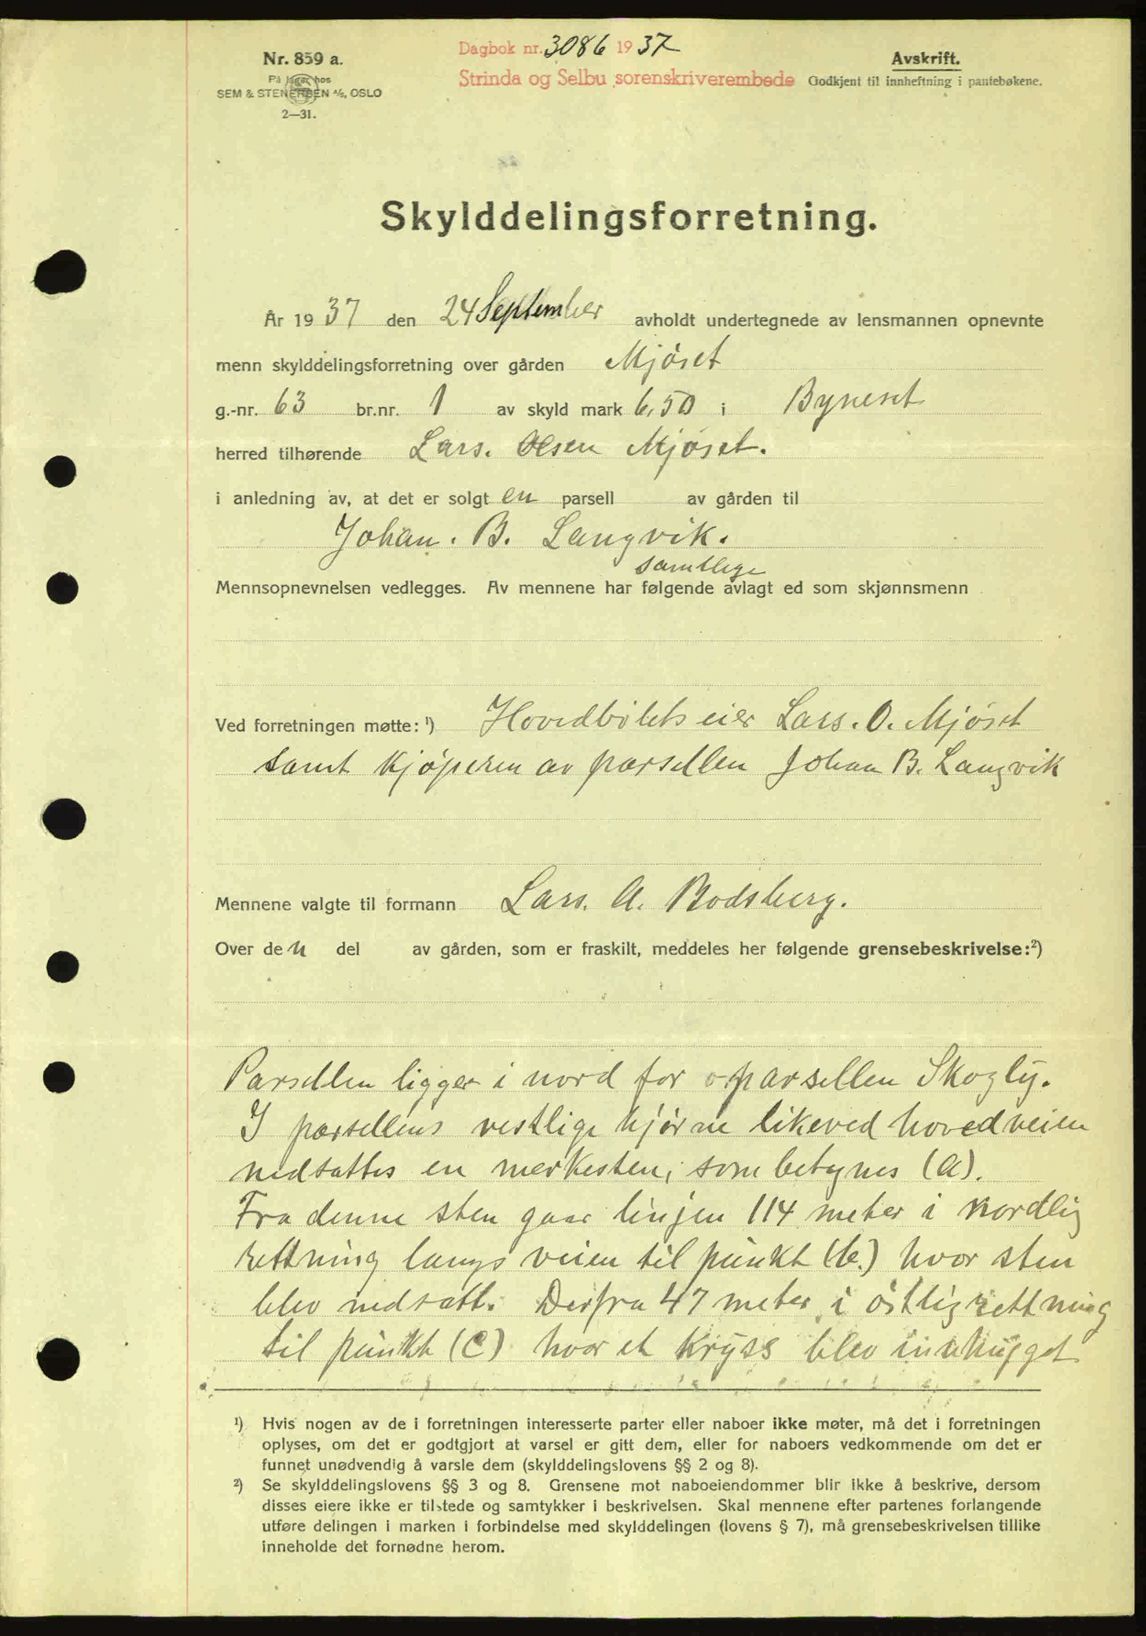 Nr. 859 a.
På lager hos
SEM & STENERSEN A/S, OSLO
2—31.
Dagbok nr. 3086 1937
Strinda og Selbu sorenskriverembede
Avskrift.
Godkjent til innheftning i pantebøkene.
Skylddelingsforretning.
År 1937 den 24 September avholdt undertegnede av lensmannen opnevnte
menn skylddelingsforretning over gården Mjøset
g.-nr. 63 br.nr. 1 av skyld mark 6,50 i Byneset
herred tilhørende Lars. Olsen Mjøset.
i anledning av, at det er solgt en parsell av gården til
Johan. B. Langvik.
samtlige
Mennsopnevnelsen vedlegges. Av mennene har følgende avlagt ed som skjønnsmenn
Ved forretningen møtte: ¹) Hovedbølets eier Lars. O. Mjøset
samt kjøperen av parsellen Johan B. Langvik
Mennene valgte til formann Lars. A. Bodsberg.
Over den del av gården, som er fraskilt, meddeles her følgende grensebeskrivelse: ²)
Parsellen ligger i nord for parsellen Skogly.
I parsellens vestlige hjørne likeved hovedveien
nedsattes en merkesten, som betegnes (a).
Fra denne sten gaar linjen 114 meter i nordlig
rettning langs veien til punkt (b.) hvor sten
blev nedsatt. Derfra 47 meter i østlig rettning
til punkt (C) hvor et kryss blev innhugget
¹) Hvis nogen av de i forretningen interesserte parter eller naboer ikke møter, må det i forretningen
oplyses, om det er godtgjort at varsel er gitt dem, eller for naboers vedkommende om det er
funnet unødvendig å varsle dem (skylddelingslovens §§ 2 og 8).
²) Se skylddelingslovens §§ 3 og 8. Grensene mot naboeiendommer blir ikke å beskrive, dersom
disses eiere ikke er tilstede og samtykker i beskrivelsen. Skal mennene efter partenes forlangende
utføre delingen i marken i forbindelse med skylddelingen (lovens § 7), må grensebeskrivelsen tillike
inneholde det fornødne herom.